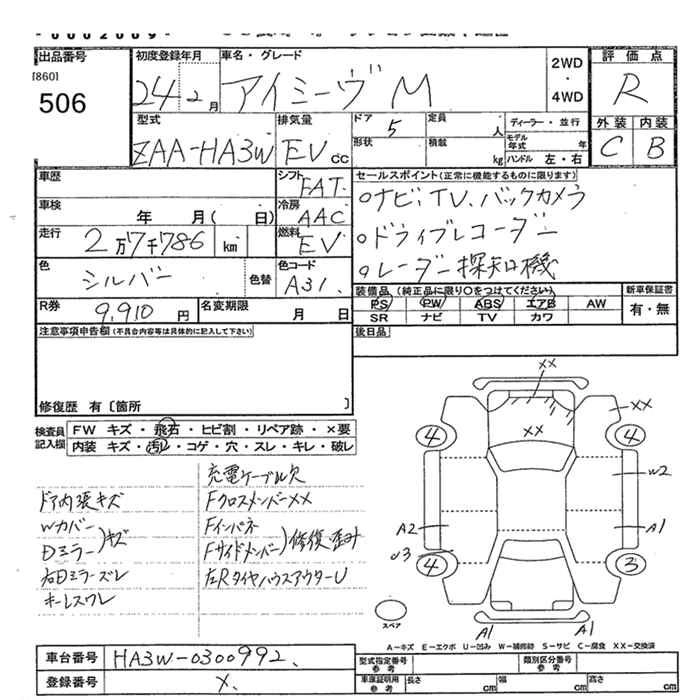 出品番号
[860]
506
初度登録年月
24年2月
車名・グレード
アイミーヴ M
2WD
・
4WD
評価点
R
外装 内装
C B
型式
ZAA-HA3W
排気量
EV CC
ドア 5
定員 人
形状
積載 kg
ディーラー・並行
モデル年式 年
ハンドル 左・右
車歴
シフト FAT
車検 年 月( 日)
冷房 AAC
走行 2万7千786 km
燃料 EV
色 シルバー 色替
色コード A31.
R券 9,910 円
名変期限 月 日
セールスポイント(正常に機能するものに限ります)
○ナビ、TV、バックカメラ
○ドライブレコーダー
○レーダー探知機
装備品(純正品に限り○をつけてください)
PS PW ABS エアB AW
SR ナビ TV カワ
新車保証書
有・無
注意事項申告欄(不具合内容等は具体的に記入して下さい)
後日品
修復歴 有〔箇所 〕
検査員記入欄
FW キズ・飛石・ヒビ割・リペア跡・×要
内装 キズ・汚レ・コゲ・穴・スレ・キレ・破レ
充電ケーブル欠
ドア内張キズ
Fクロスメンバー××
Wカバー
Dミラー )キズ
Fインパネ
Fサイドメンバー )修復歪み
右Dミラーズレ
左RタイヤハウスアウターU
ホーレスワレ
XX
XX
XX
4
4
W2
A2
A1
U3
4
3
スペア
A1
A1
A-キズ E-エクボ U-凹み W-補修跡 S-サビ C-腐食 XX-交換済
車台番号 HA3W-0300992.
登録番号 X.
型式指定番号 参考
類別区分番号 参考
車庫証明用 参考 長さ cm 幅 cm 高さ cm